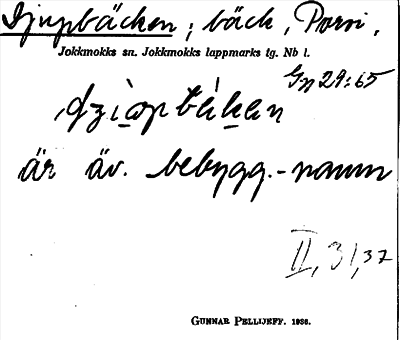 Djupbäcken; bäck, Porsi,
Jokkmokks sn. Jokkmokks lappmarks tg. Nb l.
Gn 29:65
är äv. bebygg.-namn
II, 31,37
GUNNAR PELLIJEFF. 1936.